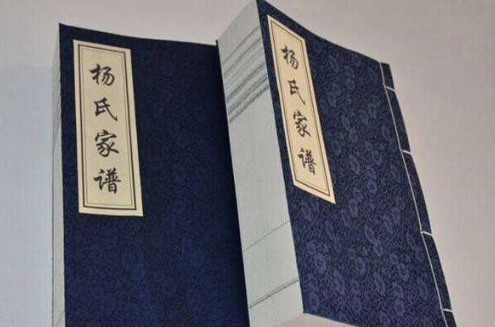 杨氏家谱
杨氏家谱